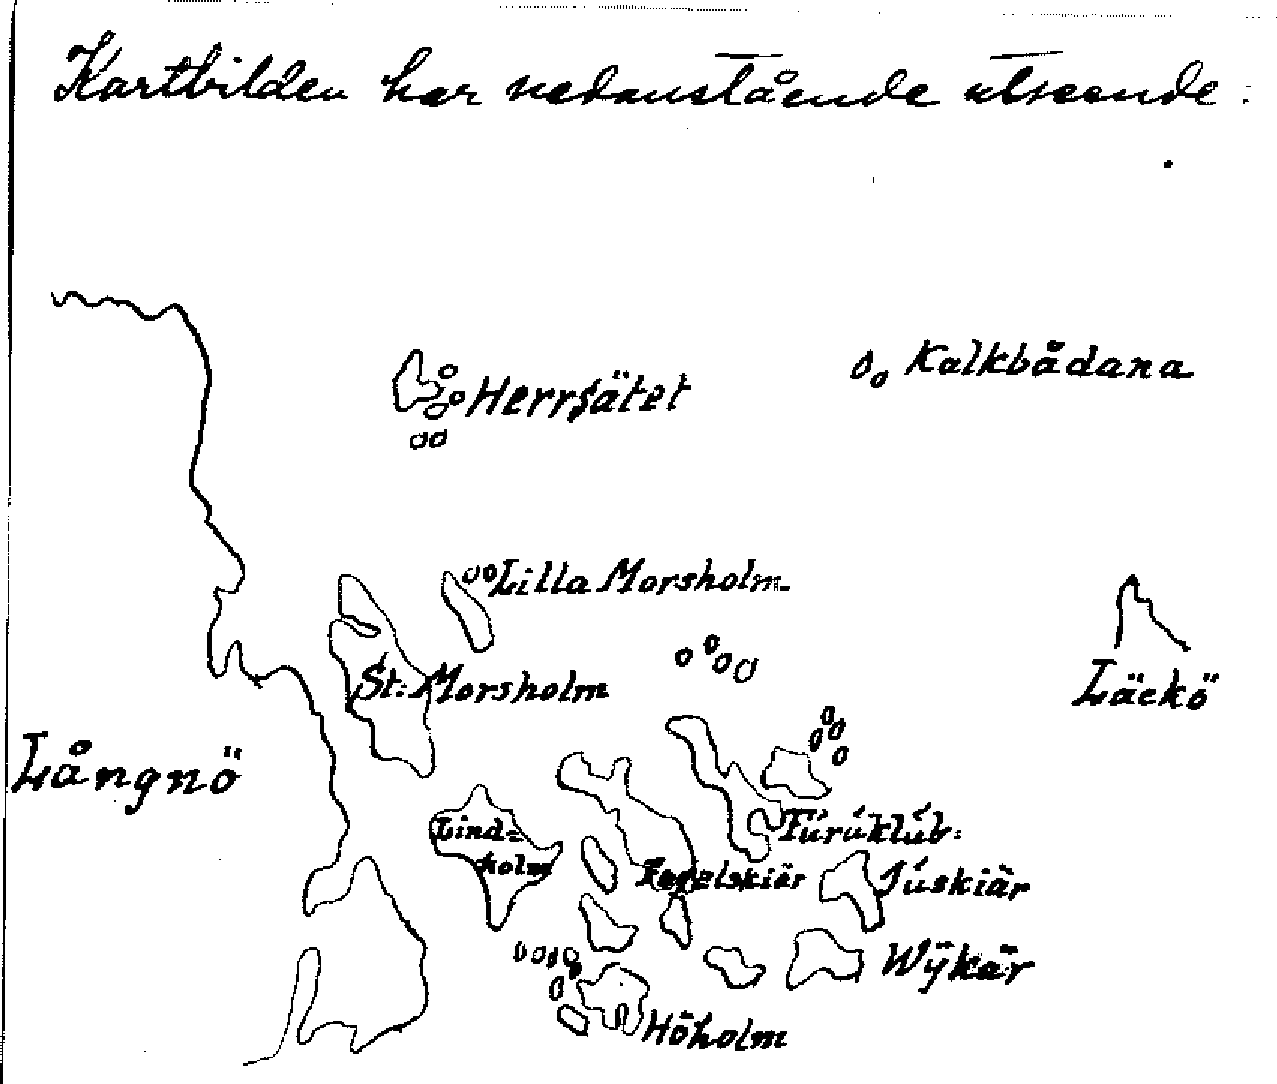 Kartbilden har nedanstående utseende:
Kalkbådana
Herrsätet
Lilla Morsholm
St: Morsholm
Läckö
Långnö
Lind=
holm
Turuklub:
Fogelskiär
Juskiär
Wÿkär
Höholm